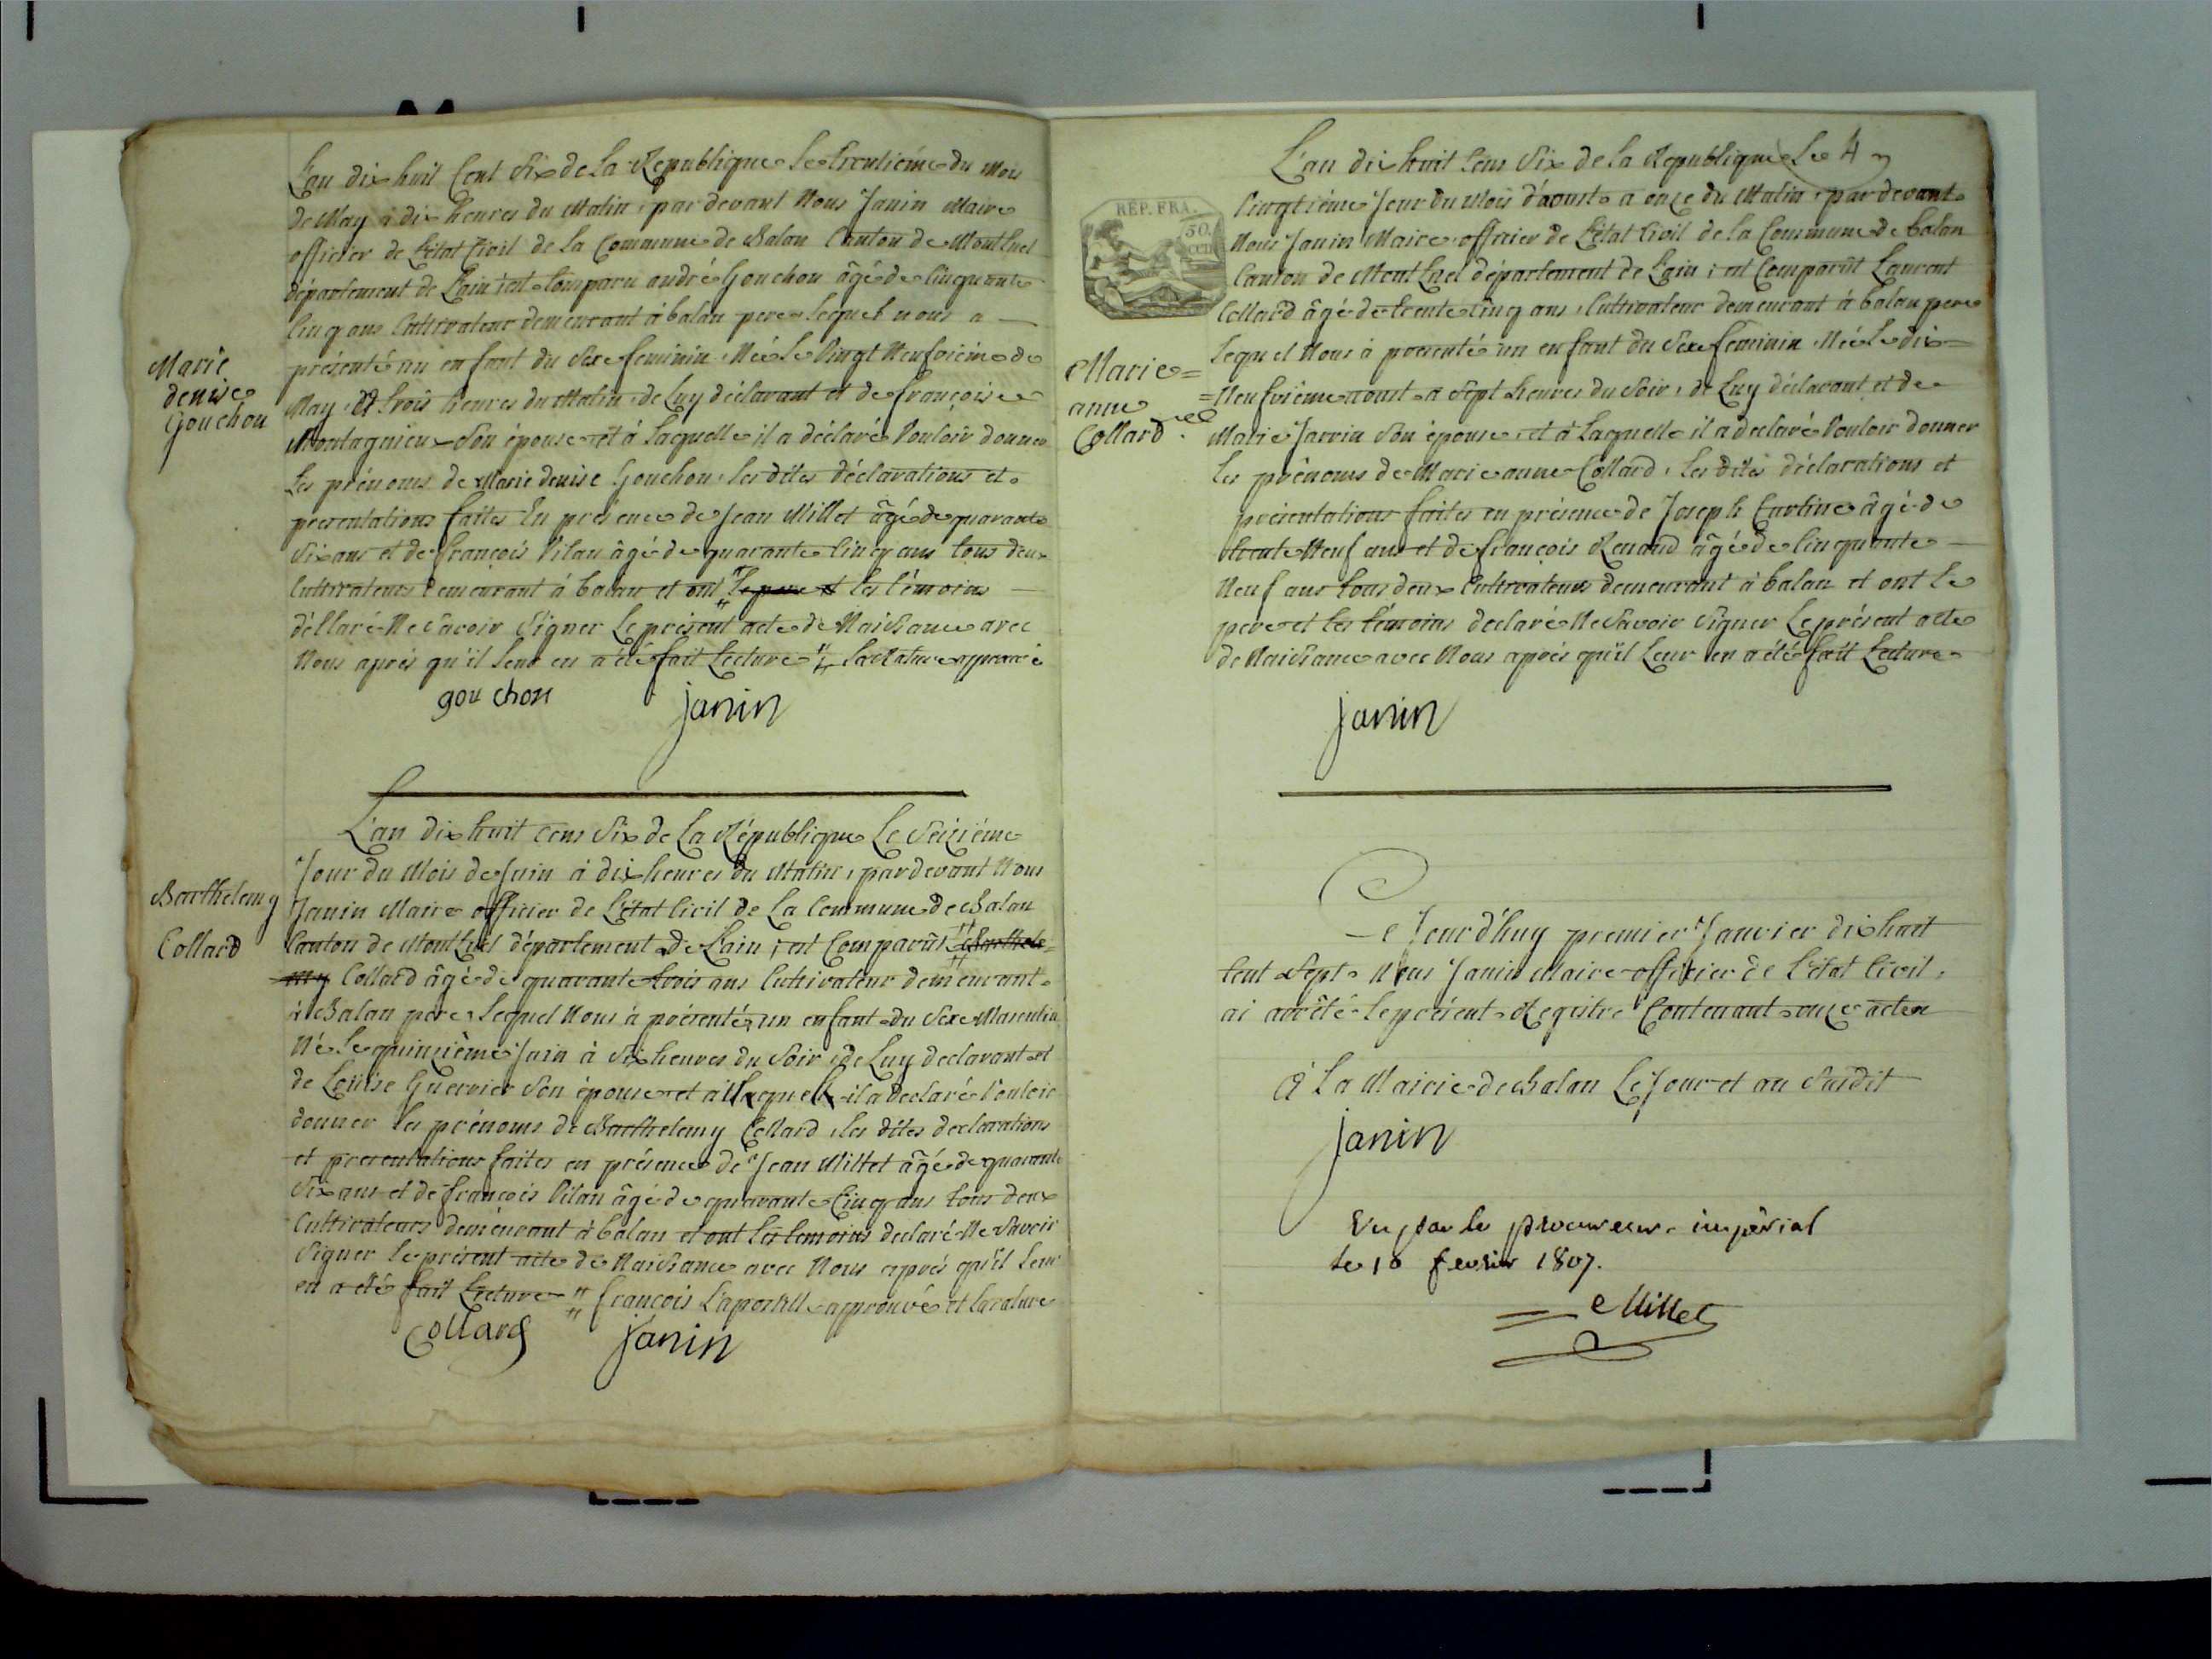 L'an dix huit Cent Six de La Republique le trentiéme du mois
de May à dix heures du Matin, par devant Nous Janin Maire
officier de L'état Civil de la Commune de Balan Canton de Montluel
département de L'ain, est Comparu andré Gouchon âgé de Cinquante
Cinq ans Cultivateur demeurant à balan pere lequel nous a
présenté un enfant du Sexe feminin Née Le Vingt Neufvième de
May, à trois heures du Matin, de Luy déclarant et de françoise
Montagnieux Son épouse et à Laquelle il a déclaré Vouloir donner
Les prénoms de Marie denise Gouchon, les dites déclarations et
presentations faites En présence de Jean Millet âgé de quarante
Six ans et de françois Pilan âgé de quarante Cinq ans tous deux
Cultivateurs demeurant à balan et ont le pere et les témoins
déllaré Ne Savoir Signer Le présent acte de Naissance avec
Nous après qu'il Leur en a été fait Lecture La Rature approuvée
gou chon janin
Marie
denise
Gouchon
L'an dix huit cens Six de La République Le Seiziéme
Jour du Mois de Juin à dix heures du Matin, par devant Nous
Janin Maire officier de L'état Civil de La Commune de Balan
Canton de Montluel département de L'ain, est Comparût Barthele-
my Collard âgé de quarante trois ans Cultivateur demeurant
à Balan pere, Lequel Nous à présenté, un enfant du Sexe Masculin
Né Le quinzième Juin à Six heures du Soir, de Luy declarant et
de Loüise Guerrier Son épouse et à Laquelle il a declaré Vouloir
donner les prénoms de Barthelemy Collard, les dites declarations
et presentations faites en présence de Jean Millet âgé de quarante
Six ans et de françois Pilan âgé de quarante Cinq ans tous deux
Cultivateurs demeurant à balan et ont Les temoins declaré Ne Savoir
Signer Le présent acte de Naissance avec Nous après qu'il Leur
en a été fait Lecture " françois L'apostille approuvée et La rature
Collard janin
Barthelemy
Collard
L'an dix huit Cens Six de la Republique Le
Vingtième Jour du Mois d'aoust a onze du Matin, par devant
Nous Janin Maire officier de L'état Civil de la Commune de balan
Canton de Montluel département de L'ain, est Comparût Laurent
Collard âgé de trente Cinq ans, Cultivateur demeurant à balan pere
Lequel Nous à présenté un enfant du Sexe feminin Née Le dix-
=Neufvième aoust a Sept heures du Soir, de Luy déclarant et de
Marie Janin Son épouse, et à Laquelle il a declaré Vouloir donner
les prénoms de Marie anne Collard, Les dites déclarations et
présentations faites en présence de Joseph âgé de
trente Neuf ans et de françois Renaud âgé de Cinquante
Neuf ans tous deux Cultivateurs demeurant à balan et ont le
pere et les témoins declaré Ne Savoir Signer Le présent acte
de Naissance avec Nous après qu'il Leur en a été fait Lecture
janin
RÉP. FRA.
50.
CEN
Marie=
anne
Collard
Ce Jourd'huy premier Janvier dix huit
Cent Sept Nous Janin Maire officier de L'état Civil,
ai arrêté le présent Registre Contenant onze actes
à La Mairie de Balan Le Jour et an Susdit
janin
Vu par le procureur impérial
le 10 fevrier 1807.
Millet